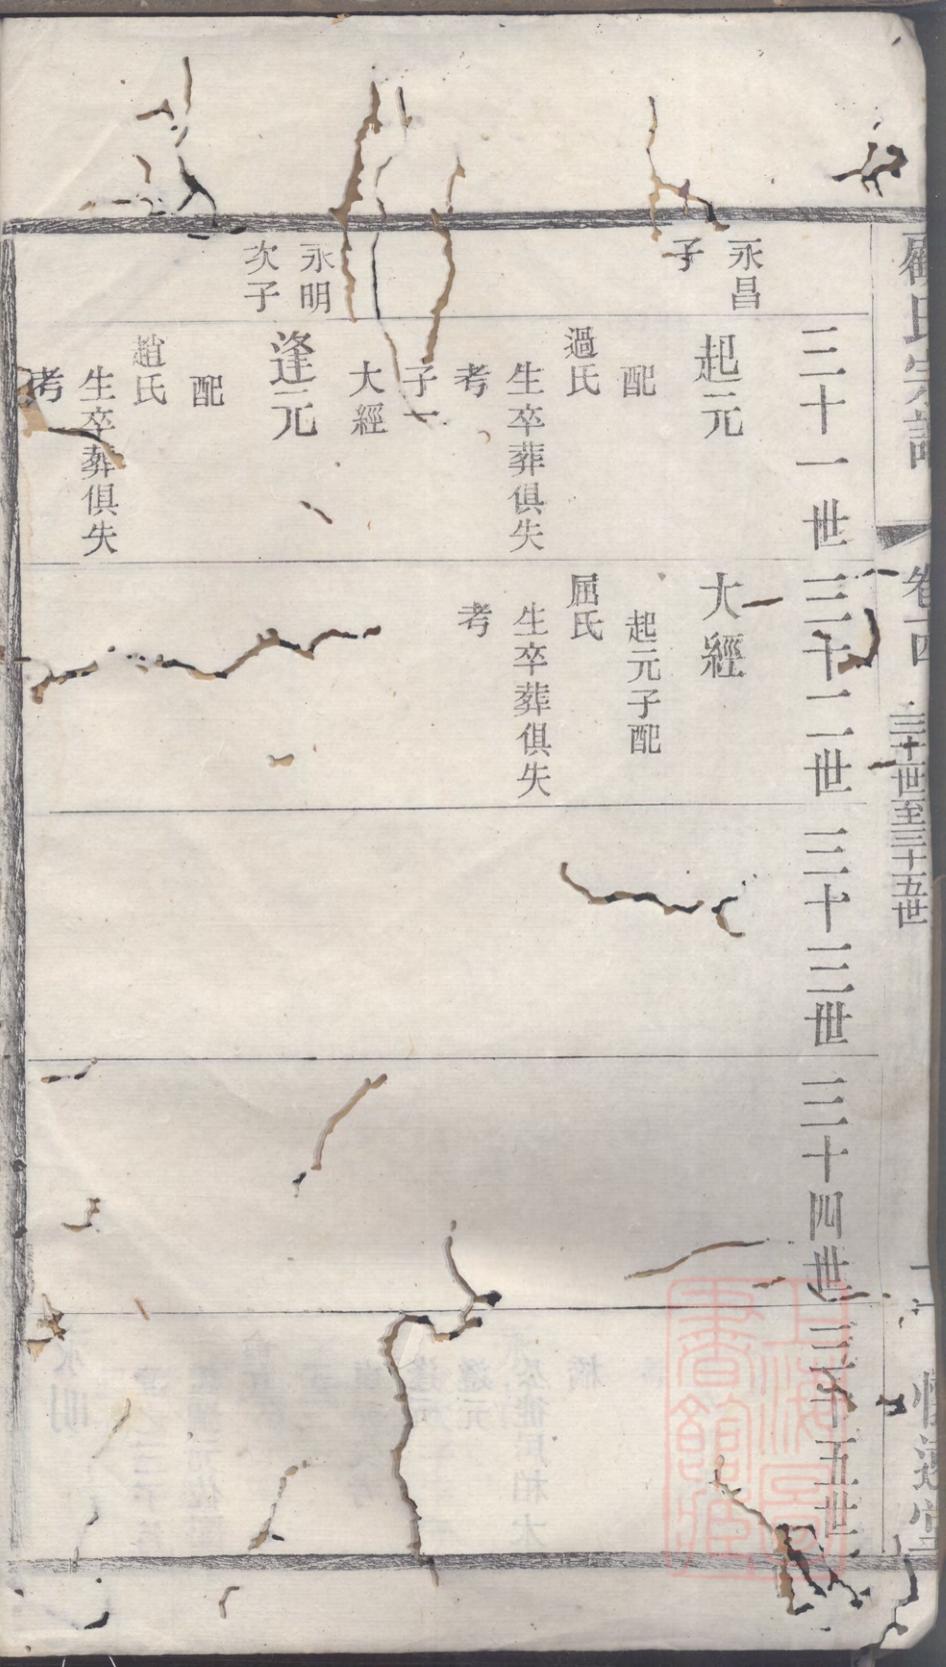 顧氏宗譜
卷十四
三十一世至三十五世
三十一世
三十二世
三十三世
三十四世
三十五世
永昌
子
起元
配
過氏
生卒葬俱失
考
子一
大經
永明
次子
逢元
配
趙氏
生卒葬俱失
考
大經
起元子配
屈氏
生卒葬俱失
考
上海圖
書館藏